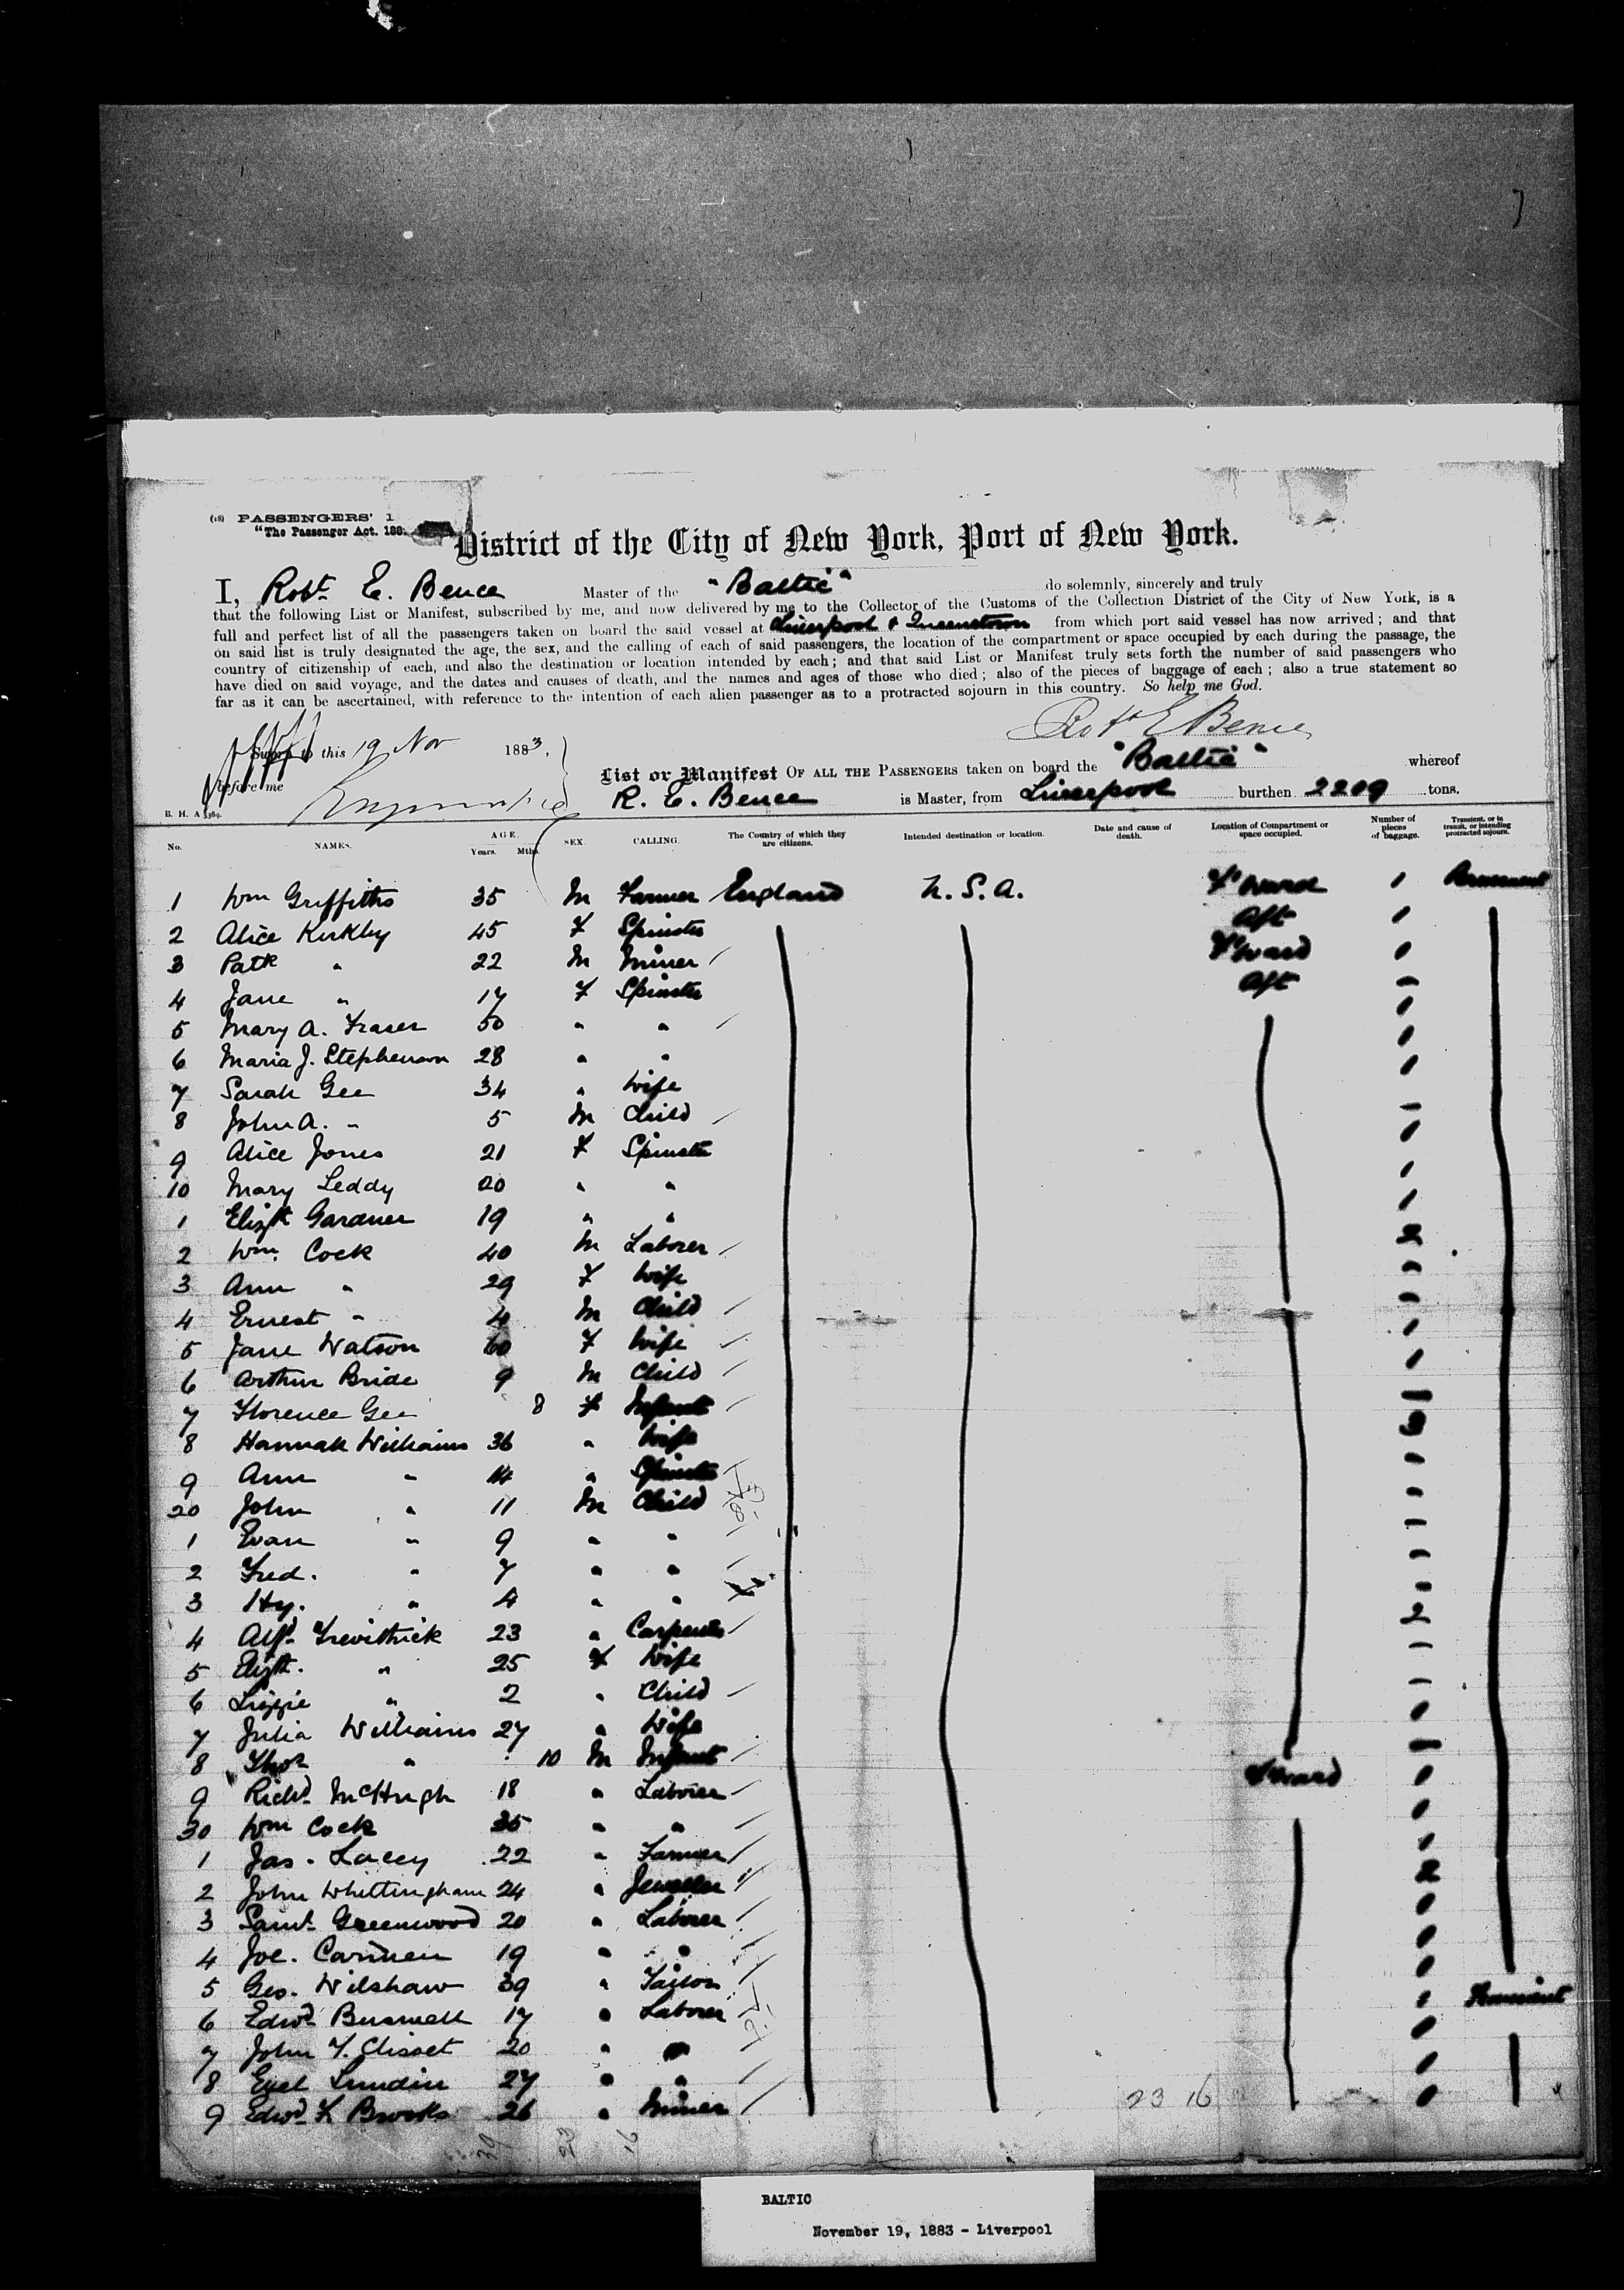 (18) PASSENGERS' 1
"The Passenger Act. 188
District of the City of New York, Port of New York.
I, Robt. E. Bence Master of the "Baltic" do solemnly, sincerely and truly
that the following List or Manifest, subscribed by me, and now delivered by me to the Collector of the Customs of the Collection District of the City of New York, is a
full and perfect list of all the passengers taken on board the said vessel at Liverpool & Queenstown from which port said vessel has now arrived; and that
on said list is truly designated the age, the sex, and the calling of each of said passengers, the location of the compartment or space occupied by each during the passage, the
country of citizenship of each, and also the destination or location intended by each; and that said List or Manifest truly sets forth the number of said passengers who
have died on said voyage, and the dates and causes of death, and the names and ages of those who died; also of the pieces of baggage of each; also a true statement so
far as it can be ascertained, with reference to the intention of each alien passenger as to a protracted sojourn in this country. So help me God.
Robt E Bence
Sworn to this 19 Nov 1883,
before me
List or Manifest OF ALL THE PASSENGERS taken on board the "Baltic" whereof
R. E. Bence is Master, from Liverpool burthen 2209 tons.
B. H. A 5389.
No. NAMES. AGE. Years. Mths. SEX. CALLING. The Country of which they are citizens. Intended destination or location. Date and cause of death. Location of Compartment or space occupied. Number of pieces of baggage. Transient, or in transit, or intending protracted sojourn.
1 Wm Griffiths 35 M Farmer England U.S.A. F'ward 1 Permanent
2 Alice Kirkby 45 F Spinster Aft 1
3 Patk " 22 M Miner F'ward 1
4 Jane " 17 F Spinster Aft -
5 Mary A. Fraser 50 " " 1
6 Maria J. Stephenson 28 " " 1
7 Sarah Gee 34 " Wife 1
8 John A. " 5 M Child -
9 Alice Jones 21 F Spinster 1
10 Mary Leddy 20 " " 1
1 Elizth Gardner 19 " " 1
2 Wm. Cock 40 M Laborer 2
3 Ann " 29 F Wife -
4 Ernest " 4 M Child -
5 Jane Watson 60 F Wife 1
6 Arthur Bride 9 M Child 1
7 Florence Gee 8 F Infant -
8 Hannah Williams 36 " Wife 3
9 Ann " 14 " Spinster -
20 John " 11 M Child -
1 Evan " 9 " " -
2 Fred. " 7 " " -
3 Hy. " 4 " " -
4 Alfd. Trevithick 23 " Carpenter 2
5 Elizth. " 25 F Wife -
6 Lizzie " 2 " Child -
7 Julia Williams 27 " Wife 1
8 Thos " 10 M Infant -
9 Richd. McHugh 18 " Laborer F'ward 1
30 Wm Cock 35 " " 1
1 Jas. Lacey 22 " Farmer 1
2 John Whittingham 24 " Jeweller 2
3 Saml. Greenwood 20 " Laborer 1
4 Joe. Carmen 19 " " 1
5 Geo. Wilshaw 39 " Tailor 1
6 Edwd. Buswell 17 " Laborer 1 Transient
7 John F. Clisset 20 " " 1
8 Lundin 27 " " 1
9 Edwd. F. Brooks 26 " Miner 1
23 16
BALTIC
November 19, 1883 - Liverpool